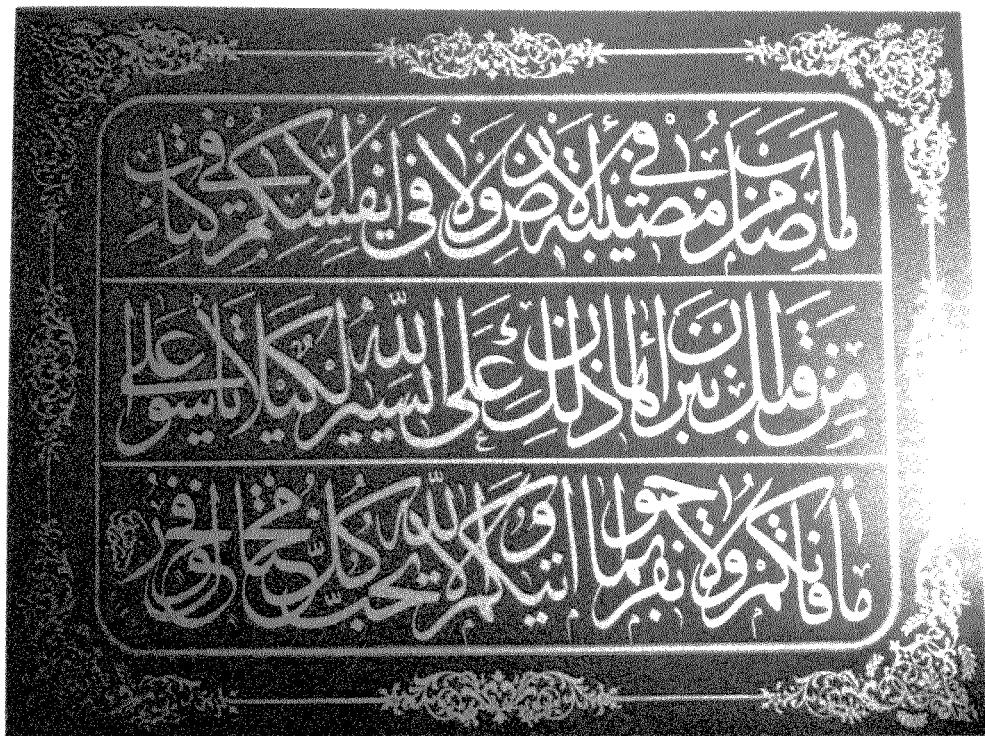 ما اصاب من مصيبة في الارض ولا في انفسكم الا في كتاب
من قبل ان نبرأها ان ذلك على الله يسير لكيلا تأسوا على
ما فاتكم ولا تفرحوا بما اتيكم والله لا يحب كل مختال فخور